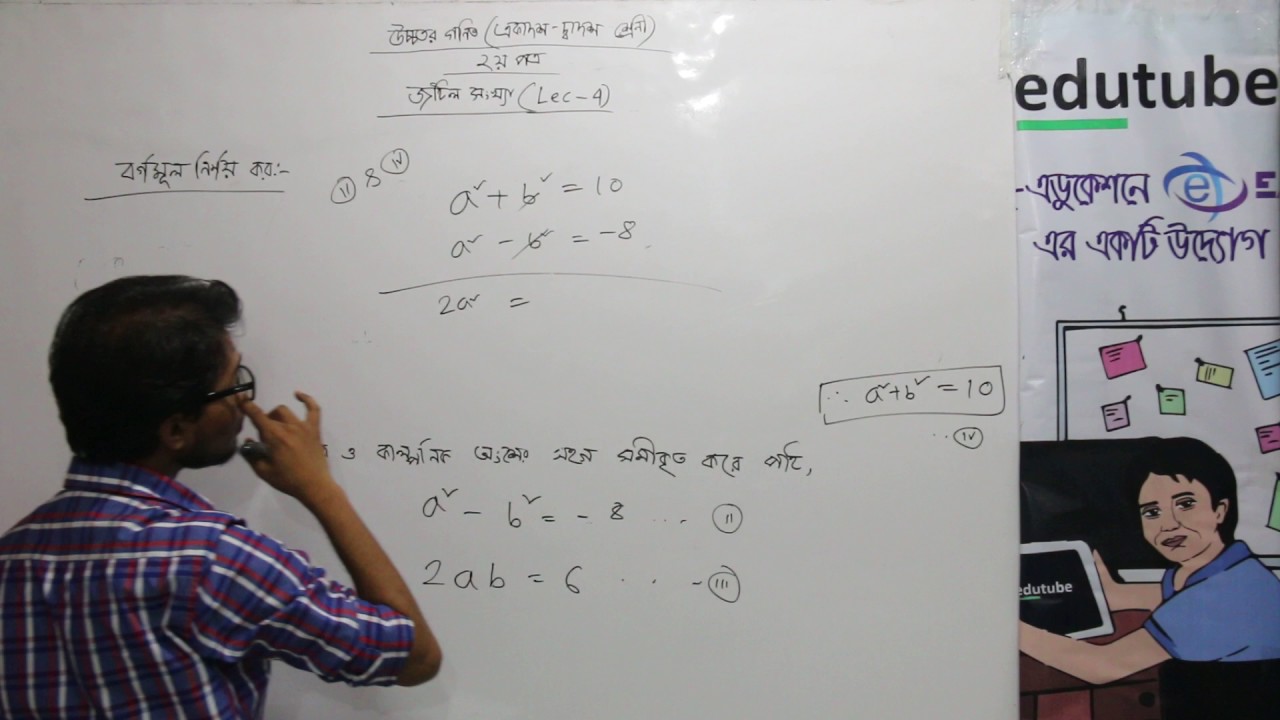 উচ্চতর গনিত (একাদশ-দ্বাদশ শ্রেনী)
২য় পত্র
জটিল সংখ্যা (Lec-4)
বর্গমূল নির্ণয় কর:-
(ii) ও (iv)
a² + b² = 10
a² - b² = -8
2a² =
∴ a²+b² = 10
...(iv)
ও কাল্পনিক অংশের সমীকৃত করে পাই,
a² - b² = -8 ... (ii)
2ab = 6 ... (iii)
edutube
-এডুকেশনে e E
এর একটি উদ্যোগ
edutube